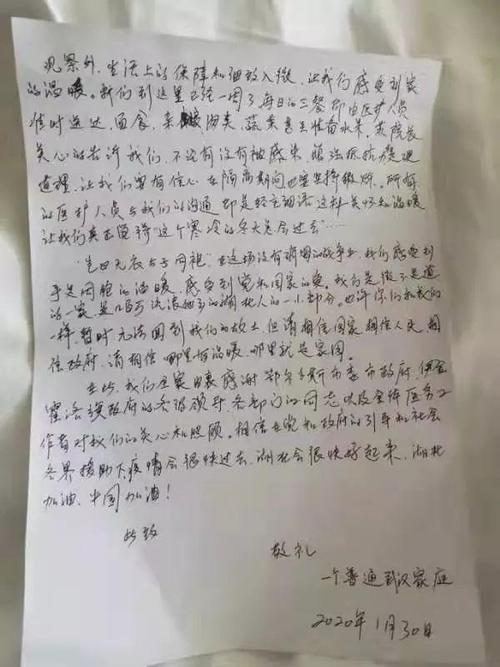 观察外，生活上的保障和细致入微，让我们感受到家
的温暖。我们到这里已经一周了，每日的三餐都由医护人员
准时送达，面食、肉类、蔬菜甚至水果
关心的告诉我们，不论有没有被感染，抵抗力是
道理，让我们要有信心，在隔离期间也要坚持锻炼。所有
的医护人员与我们的沟通都是轻言细语，这种关怀和温暖
让我们真正觉得这个寒冷的冬天总会过去……
“岂曰无衣，与子同袍”，在这场没有硝烟的战争中，我们感受到
手足同胞的温暖，感受到党和国家的爱。我们是微不足道
的一家，是几百万流落他乡的湖北人的一小部分，也许你们和我们
一样，暂时无法回到我们的故土，但请相信国家，相信人民，相
信政府，请相信哪里有温暖，哪里就是家园。
在此，我们全家由衷感谢鄂尔多斯市委市政府，伊金
霍洛旗政府的各级领导各部门的同志以及全体医务工
作者对我们的关心和照顾。相信在党和政府的引导和社会
各界援助下，疫情会很快过去，湖北会很快好起来，湖北
加油，中国加油！
此致
敬礼
一个普通武汉家庭
2020年1月30日